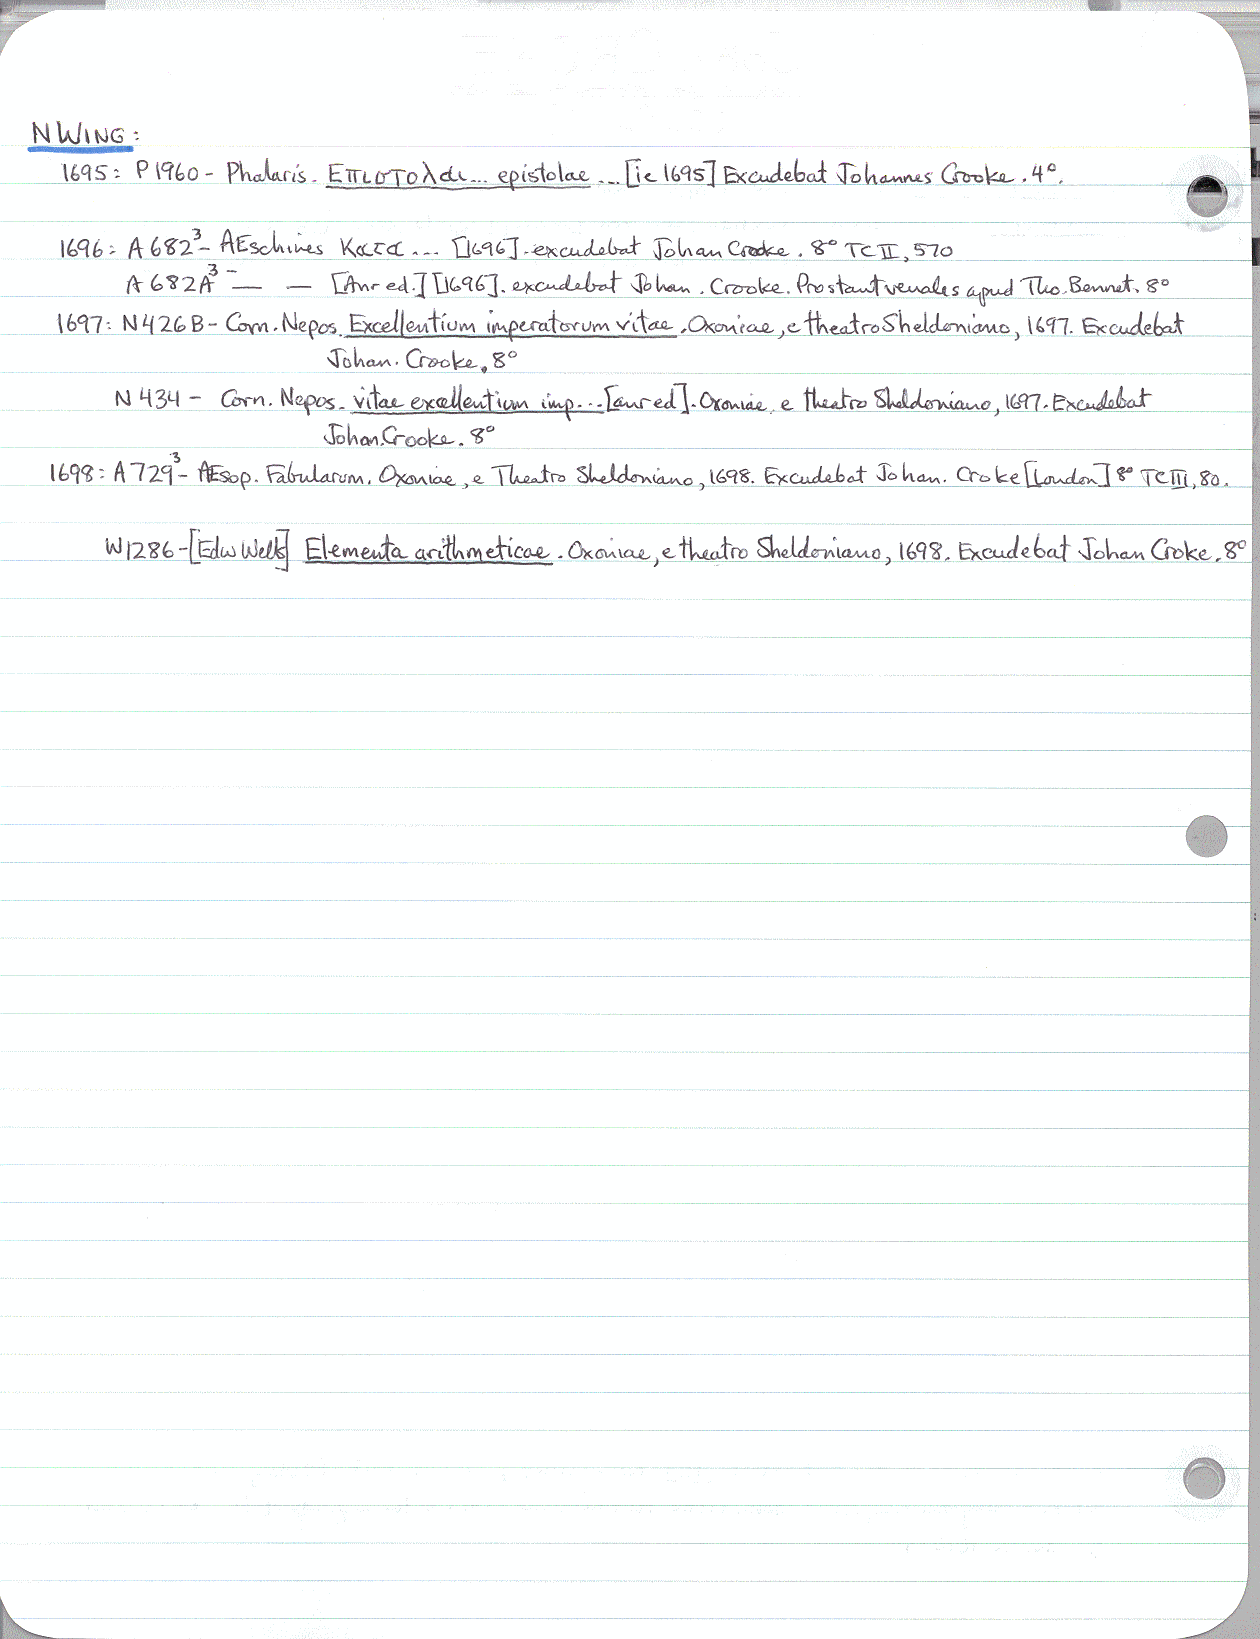 NWING:
1695: P1960 - Phalaris. Επιστολαι... epistolae ... [ie 1695] Excudebat Johannes Crooke. 4°.
1696: A682³ - AEschines Κατα ... [1696]. excudebat Johan Crooke. 8° TC II, 570
A682A³ - — — [Anr ed.] [1696]. excudebat Johan. Crooke. Prostant venales apud Tho. Bennet. 8°
1697: N426B - Corn. Nepos. Excellentium imperatorum vitae. Oxoniae, e theatro Sheldoniano, 1697. Excudebat
Johan. Crooke, 8°
N434 - Corn. Nepos. vitae excellentium imp... [anr ed]. Oxoniae, e theatro Sheldoniano, 1697. Excudebat
Johan. Crooke. 8°
1698: A729³ - AEsop. Fabularum. Oxoniae, e Theatro Sheldoniano, 1698. Excudebat Johan. Croke [London] 8° TC III, 80.
W1286 - [Edw Wells] Elementa arithmeticae. Oxoniae, e theatro Sheldoniano, 1698. Excudebat Johan Croke. 8°